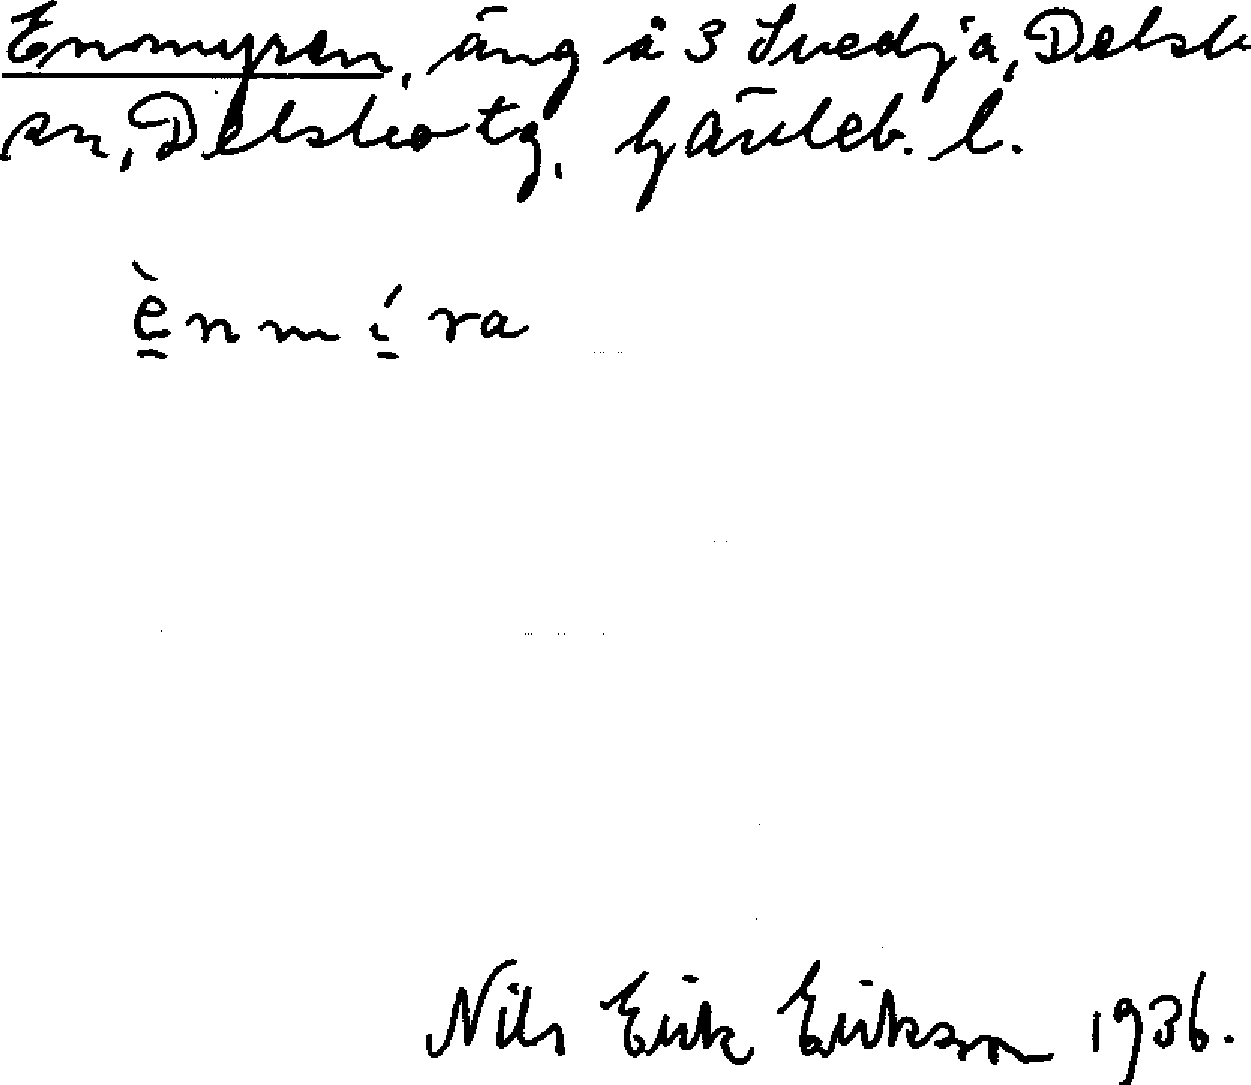 Enomyren, äng å 3 Svedja, Delsb
sn, Delsbo tg, Gävleb. l.
ènmíra
Nils Erik Erikson 1936.